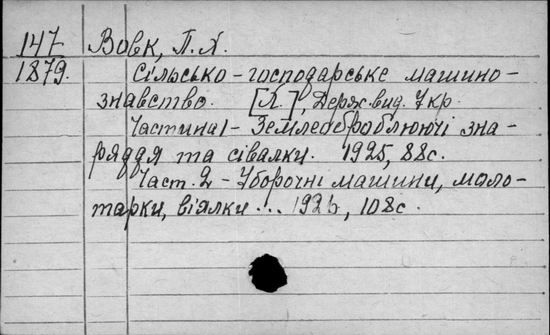 147 Вовк, П. Я.
1879. Сільсько-господарське машино-
знавство. [Х.], Держ. вид. Укр.
Частина 1 - Землеоброблюючі зна-
ряддя та сівалки. 1925, 88с.
Част. 2 - Уборочні машини, моло-
тарки, віялки... 1925, 108с.